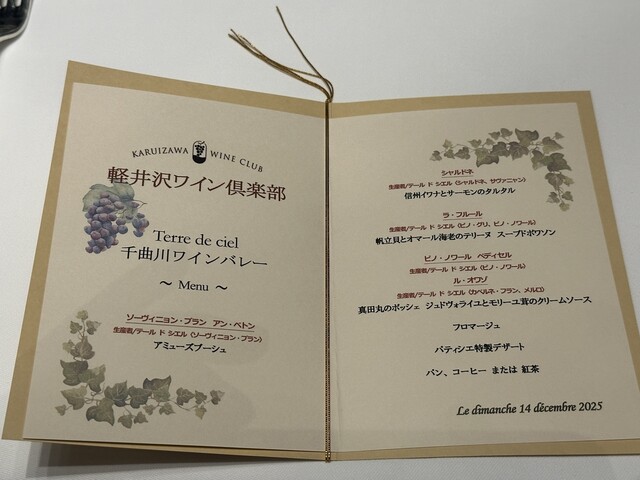 KARUIZAWA WINE CLUB
軽井沢ワイン倶楽部
Terre de ciel
千曲川ワインバレー
～ Menu ～
ソーヴィニョン・ブラン アン・ベトン
生産者/テール ド シエル (ソーヴィニョン・ブラン)
アミューズブーシュ
シャルドネ
生産者/テール ド シエル (シャルドネ、サヴァニャン)
信州イワナとサーモンのタルタル
ラ・フルール
生産者/テール ド シエル (ピノ・グリ、ピノ・ノワール)
帆立貝とオマール海老のテリーヌ スープドポワソン
ピノ・ノワール ペティセル
生産者/テール ド シエル (ピノ・ノワール)
ル・オワゾ
生産者/テール ド シエル (カベルネ・フラン、メルロ)
真田丸のポッシェ ジュドヴォライユとモリーユ茸のクリームソース
フロマージュ
パティシエ特製デザート
パン、コーヒー または 紅茶
Le dimanche 14 décembre 2025